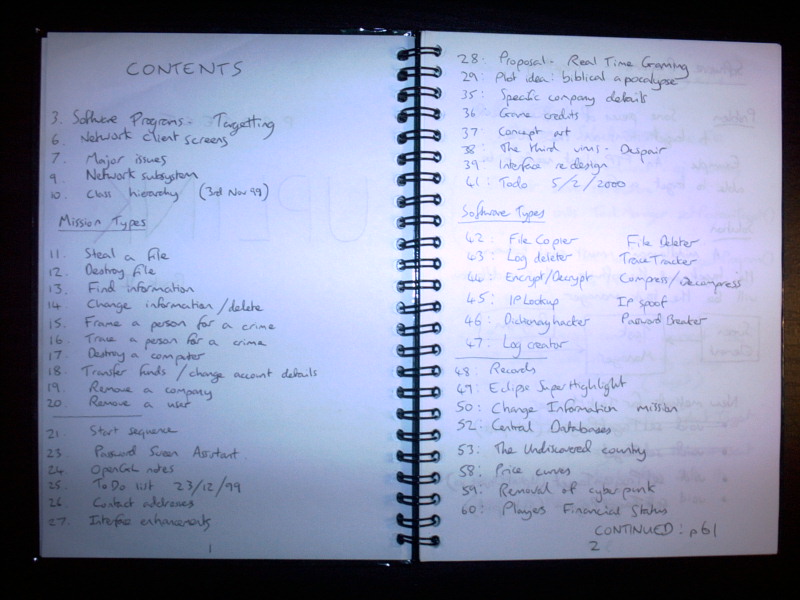 CONTENTS
3. Software Programs - Targetting
6. Network client screens
7. Major issues
9. Network subsystem
10. Class hierarchy (3rd Nov 99)
Mission Types
11. Steal a file
12. Destroy file
13. Find information
14. Change information / delete
15. Frame a person for a crime
16. Trace a person for a crime
17. Destroy a computer
18. Transfer funds / change account details
19. Remove a company
20. Remove a user
21. Start sequence
23. Password Screen Assistant.
24. OpenGL notes
25. To Do list 23/12/99
26. Contact addresses
27. Interface enhancements
1
28: Proposal - Real Time Gaming
29: Plot idea: biblical apocalypse
35: Specific company details
36 Game credits
37: Concept art
38: The third virus - Despair
39: Interface redesign
41: Todo 5/2/2000
Software Types
42: File Copier File Deleter
43: Log deleter Trace Tracker
44: Encrypt/Decrypt Compress/Decompress
45: IP Lookup IP spoof
46: Dictionary hacker Password Breaker
47: Log creator
48: Records
49: Eclipse Super Highlight
50: Change Information mission
52: Central Databases
53: The Undiscovered country
58: Price curves
59: Removal of cyberpunk
60: Players Financial Status
CONTINUED: p61
2